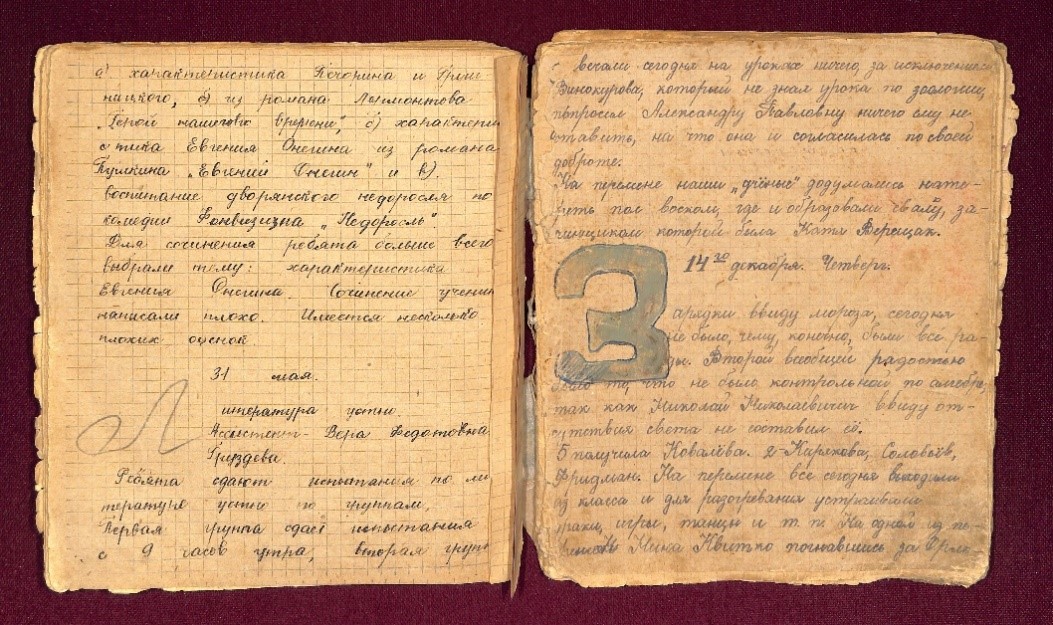 а) характеристика Печорина и Груш
ницкого, б) из романа Лермонтова
„Герой нашего времени", с) характери
стика Евгения Онегина из романа
Пушкина „Евгений Онегин" и в).
воспитание дворянского недоросля по
комедии Фонвизина „Недоросль".
Для сочинения ребята больше всего
выбрали тему: характеристика
Евгения Онегина. Сочинение ученики
написали плохо. Имеется несколько
плохих оценок.
31 мая.
Литература устно.
Ассистент - Вера Федотовна
Груздева.
Ребята сдают испытания по ли
тературе устно по группам,
Первая группа сдаёт испытания
с 9 часов утра, вторая груп
вечали сегодня на уроках ничего, за исключением
Винокурова, который не знал урока по зоологии,
попросил Александру Павловну ничего ему не
ставить, на что она и согласилась по своей
доброте.
На перемене наши „учёные" додумались нате-
реть пол воском, где и образовали свалку, за-
чинщиком которой была Катя Верещак.
14го декабря. Четверг.
Зарядки ввиду мороза, сегодня
не было, чему, конечно, были все ра-
ды. Второй всеобщей радостью
было то, что не было контрольной по алгебре,
так как Николай Николаевич ввиду от-
сутствия света не составил её.
5 получила Ковалёва. 2-Кирякова, Соловьёв,
Фридман. На перемене все сегодня выходили
из класса и для разогревания устраивали
драки, игры, танцы и т. п. На одной из пе-
ремен Миша Квитко погнавшись за